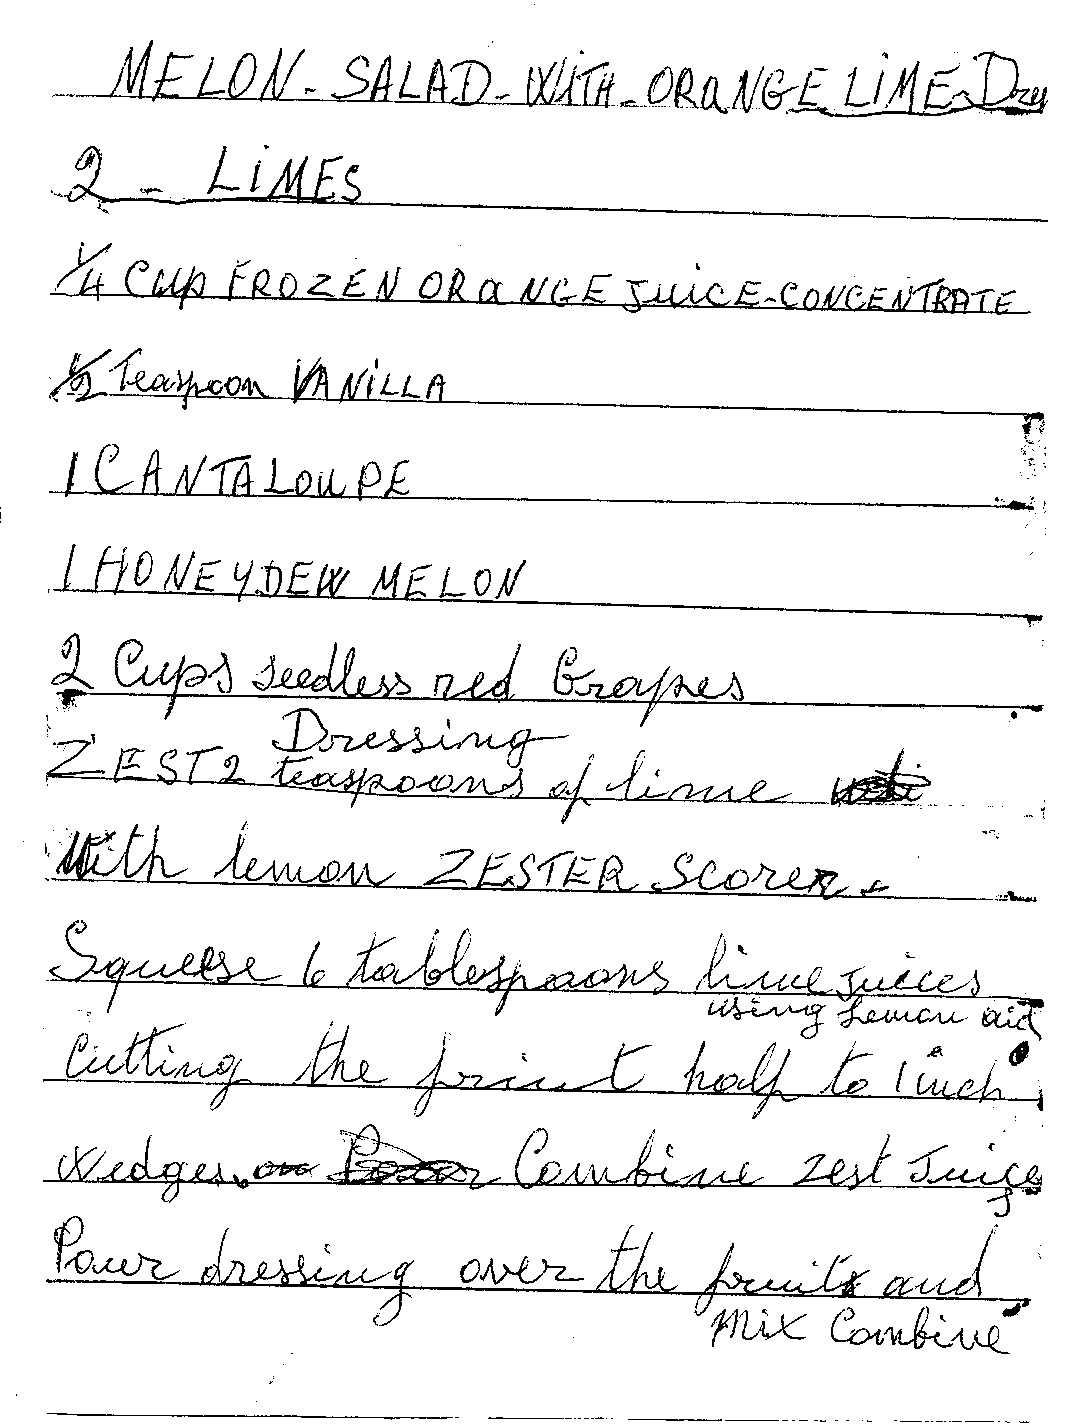 MELON - SALAD - WITH - ORANGE LIME Dres
2 - LIMES
1/4 Cup FROZEN ORANGE JUICE - CONCENTRATE
1/2 Teaspoon VANILLA
1 CANTALOUPE
1 HONEYDEW MELON
2 Cups seedless red Grapes
Dressing
ZEST 2 teaspoons of lime
With lemon ZESTER SCORER +
Squeese 6 tablespoons lime juices
using Lemon aid
Cutting the friut half to 1 inch
wedges. Combine zest Juice
Pour dressing over the fruits and
Mix Combine